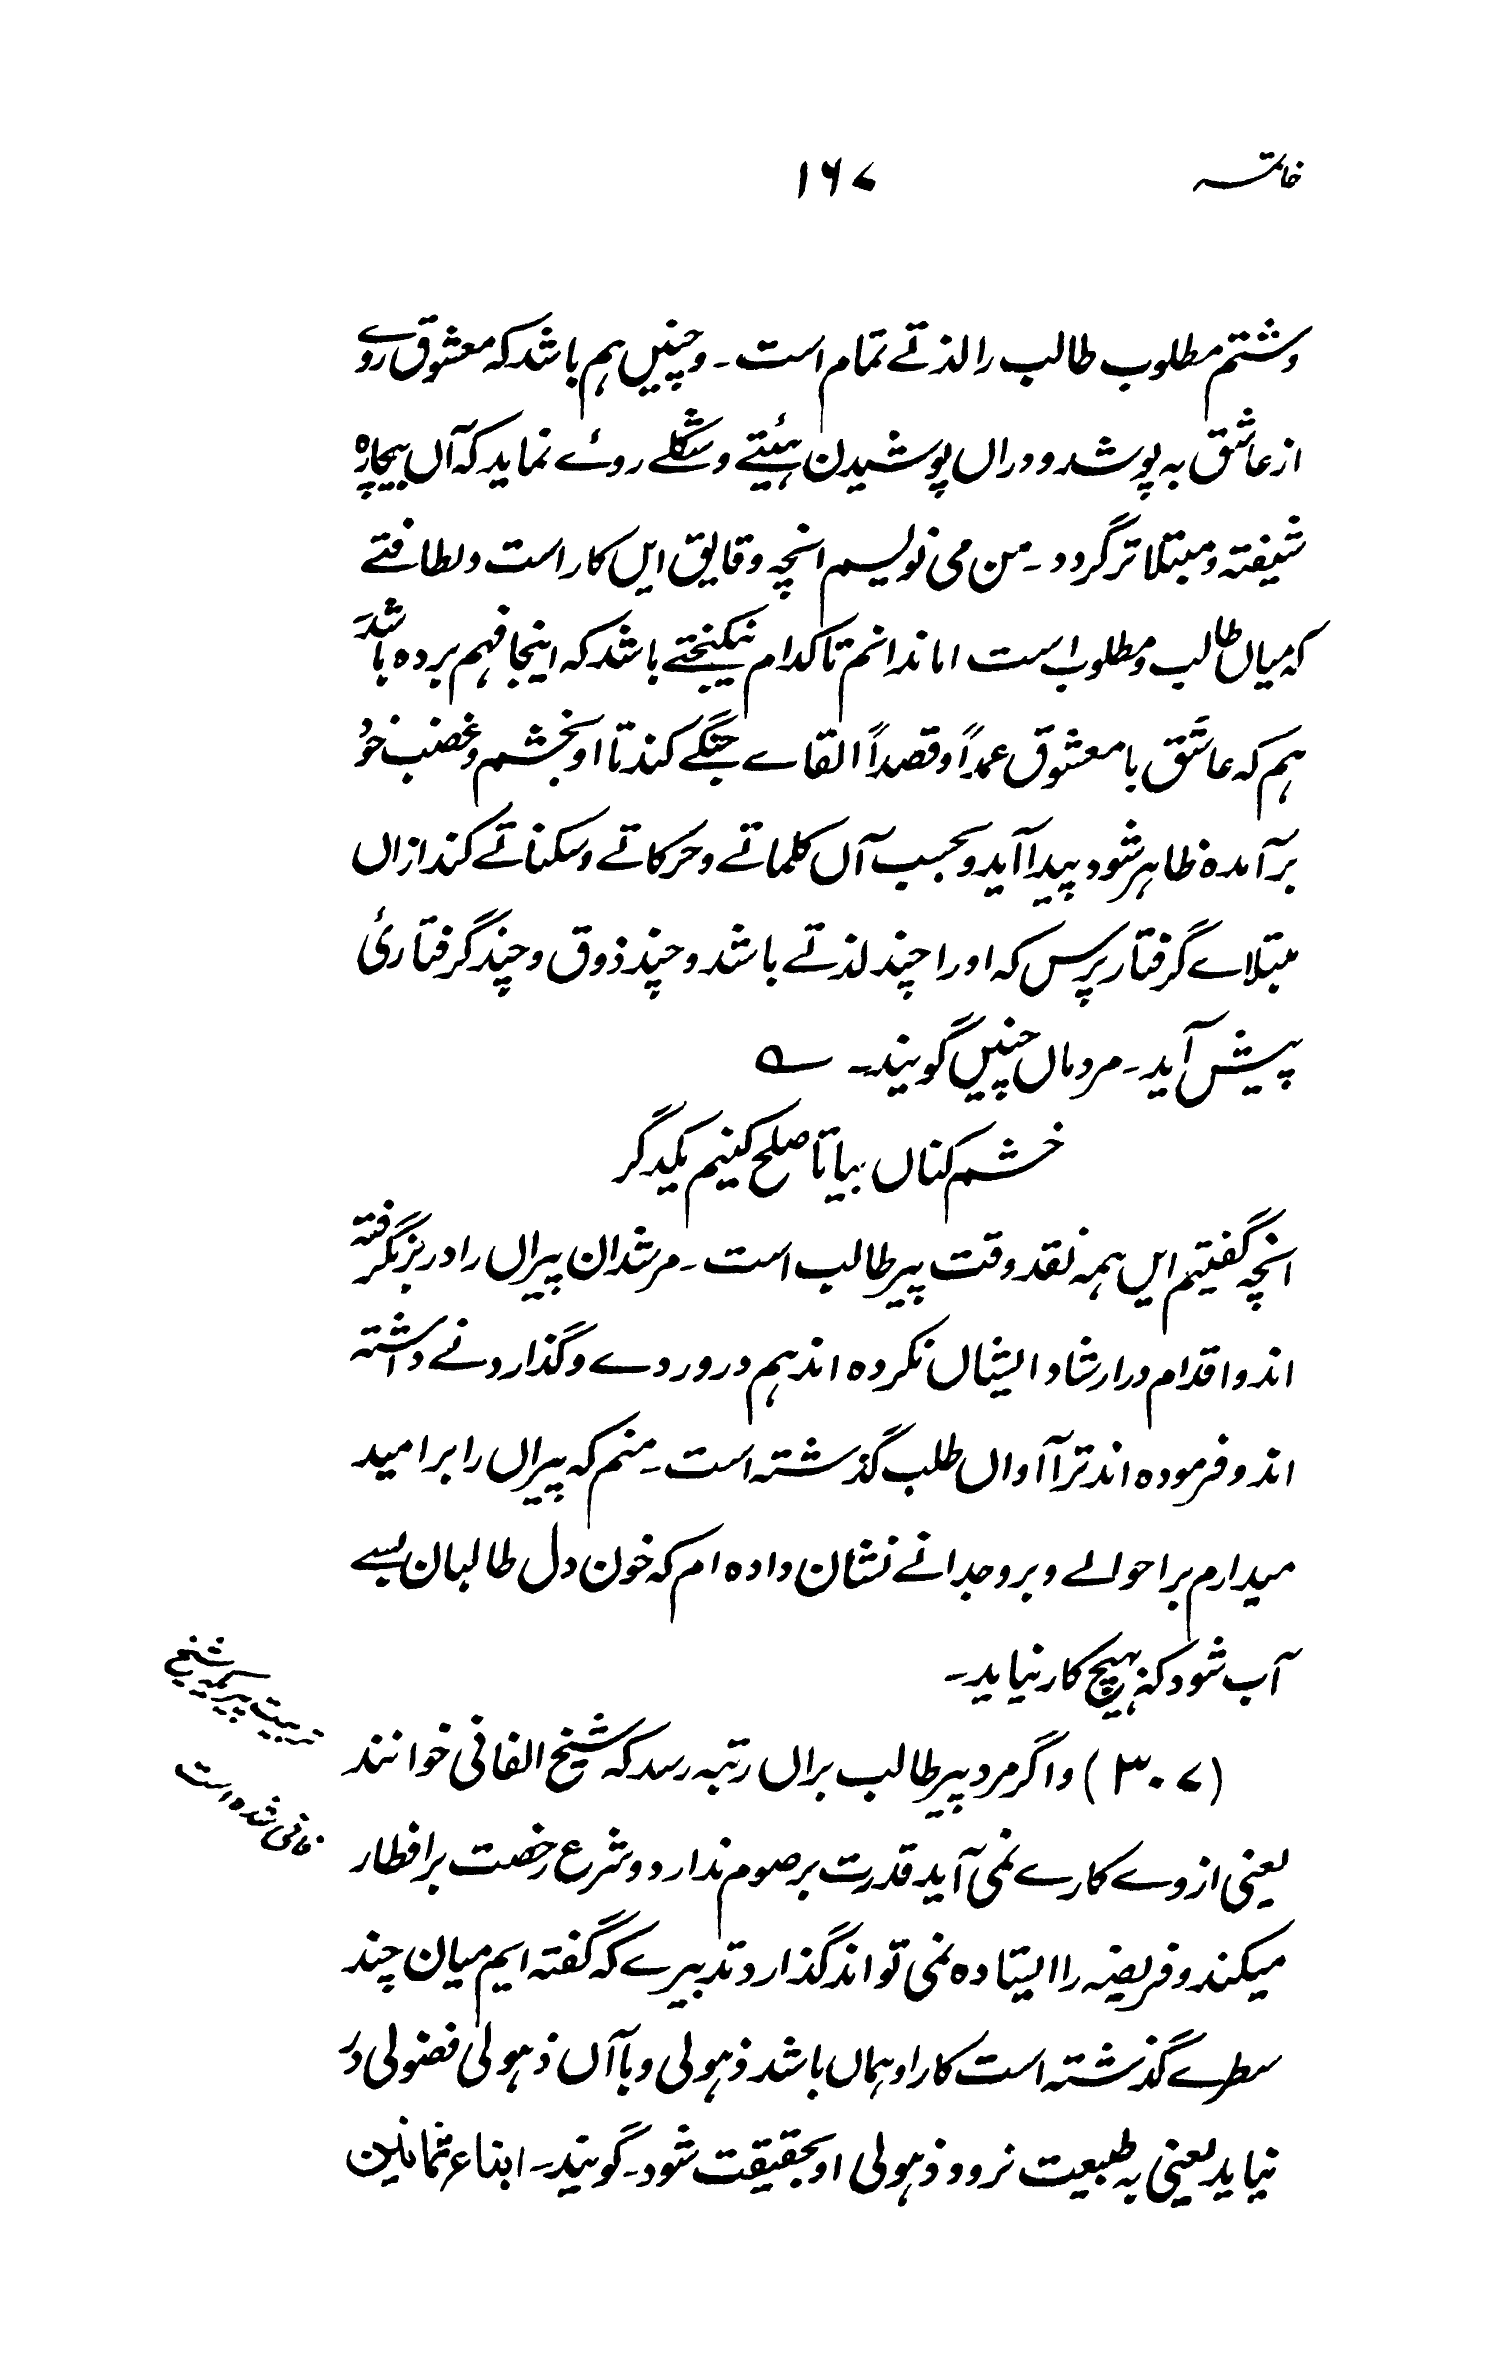 خاتمہ ۱۶۷
وشتم مطلوب طالب را لذتے تمام است ۔ و چنیں ہم باشد کہ معشوق روے
از عاشق بہ پوشد و دراں پوشیدن ہئیتے و شکلے روئے نماید کہ آں بیچارہ
شیفتہ و مبتلا تر گردد ۔ من می نویسم انچہ وقایق ایں کار است و لطافتے
کہ میاں طالب و مطلوب است اما ندانم تا کدام نیکبختے باشد کہ اینجا فہم بردہ باشد
ہم کہ عاشق با معشوق عمداً و قصداً القاے جنگے کند تا او بخشم و غضب خو
برآمدہ ظاہر شود پیدا آید و بحسب آں کلماتے و حرکاتے و سکناتے کند ازاں
مبتلاے گرفتار پرس کہ او را چند لذتے باشد و چند ذوق و چند گرفتاریٔ
پیش آید ۔ مردماں چنیں گویند ۔ ؎
خشم کناں بیا تا صلح کنیم یکدگر
انچہ گفتیم ایں ہمہ نقد وقت پیر طالب است ۔ مرشدان پیراں را در بر نگرفتہ
اند و اقدام در ارشاد ایشاں نکردہ اند ہم در وردے و گذاردنے داشتہ
اند و فرمودہ اند ترا آواں طلب گذشتہ است ۔ منم کہ پیراں را بر امید
میدارم بر احوالے و بر وجدانے نشان دادہ ام کہ خون دل طالبان بسے
آب شود کہ ہیچ کار نیاید ۔
تربیت پیریکہ شیخ
فانی شدہ است
(۳۰۷) و اگر مرد پیر طالب براں رتبہ رسد کہ شیخ الفانی خوانند
یعنی از وے کارے نمی آید قدرت بر صوم ندارد و شرع رخصت بر افطار
میکند و فریضہ را ایستادہ نمی تواند گذارد تدبیرے کہ گفتہ ایم میان چند
سطرے گذشتہ است کار او ہماں باشد ذہولی و با آں ذہولی فضولی در
نیاید یعنی بہ طبیعت نرود ذہولی او بحقیقت شود ۔ گویند ۔ ابناء ثمانین